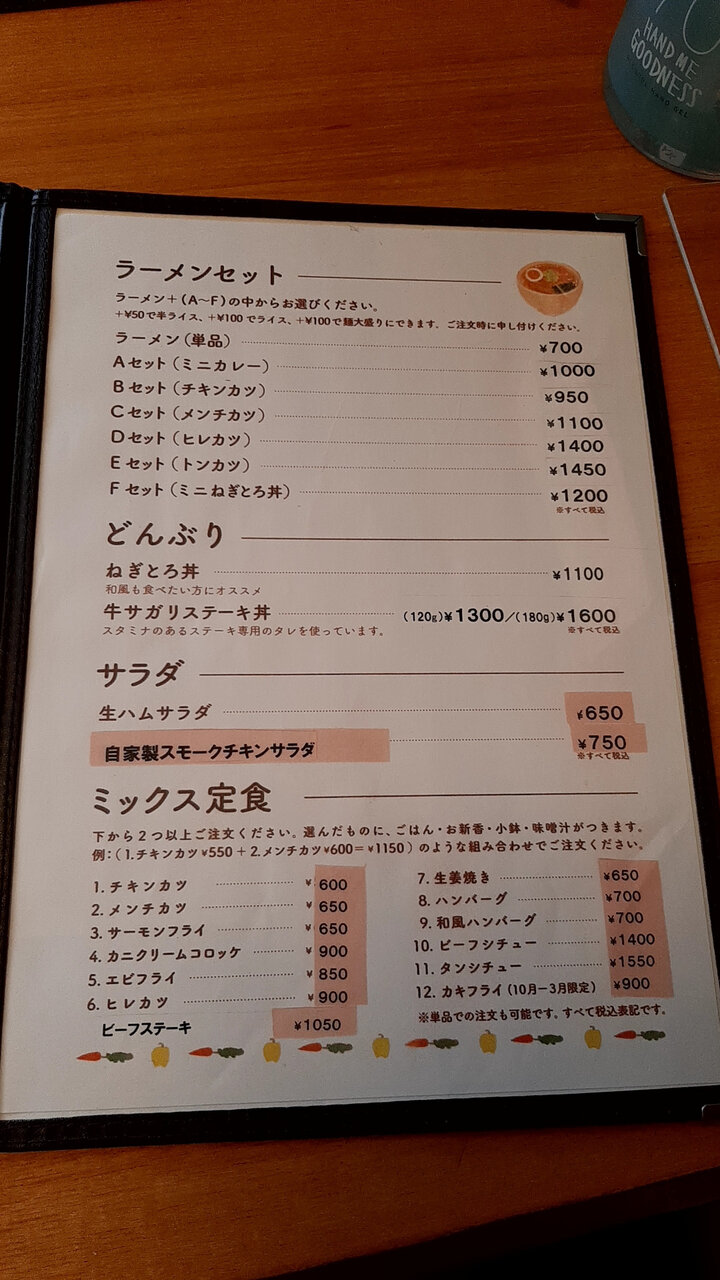 HAND ME
GOODNESS
HAND GEL
ラーメンセット
ラーメン+(A~F)の中からお選びください。
+¥50で半ライス、+¥100でライス、+¥100で麺大盛りにできます。ご注文時に申し付けください。
ラーメン(単品) ¥700
Aセット(ミニカレー) ¥1000
Bセット(チキンカツ) ¥950
Cセット(メンチカツ) ¥1100
Dセット(ヒレカツ) ¥1400
Eセット(トンカツ) ¥1450
Fセット(ミニねぎとろ丼) ¥1200
※すべて税込
どんぶり
ねぎとろ丼 ¥1100
和風も食べたい方にオススメ
牛サガリステーキ丼 (120g)¥1300/(180g)¥1600
スタミナのあるステーキ専用のタレを使っています。 ※すべて税込
サラダ
生ハムサラダ ¥650
自家製スモークチキンサラダ ¥750
※すべて税込
ミックス定食
下から2つ以上ご注文ください。選んだものに、ごはん・お新香・小鉢・味噌汁がつきます。
例:(1.チキンカツ¥550+2.メンチカツ¥600=¥1150)のような組み合わせでご注文ください。
1. チキンカツ ¥600
2. メンチカツ ¥650
3. サーモンフライ ¥650
4. カニクリームコロッケ ¥900
5. エビフライ ¥850
6. ヒレカツ ¥900
ビーフステーキ ¥1050
7. 生姜焼き ¥650
8. ハンバーグ ¥700
9. 和風ハンバーグ ¥700
10. ビーフシチュー ¥1400
11. タンシチュー ¥1550
12. カキフライ(10月-3月限定) ¥900
※単品での注文も可能です。すべて税込表記です。